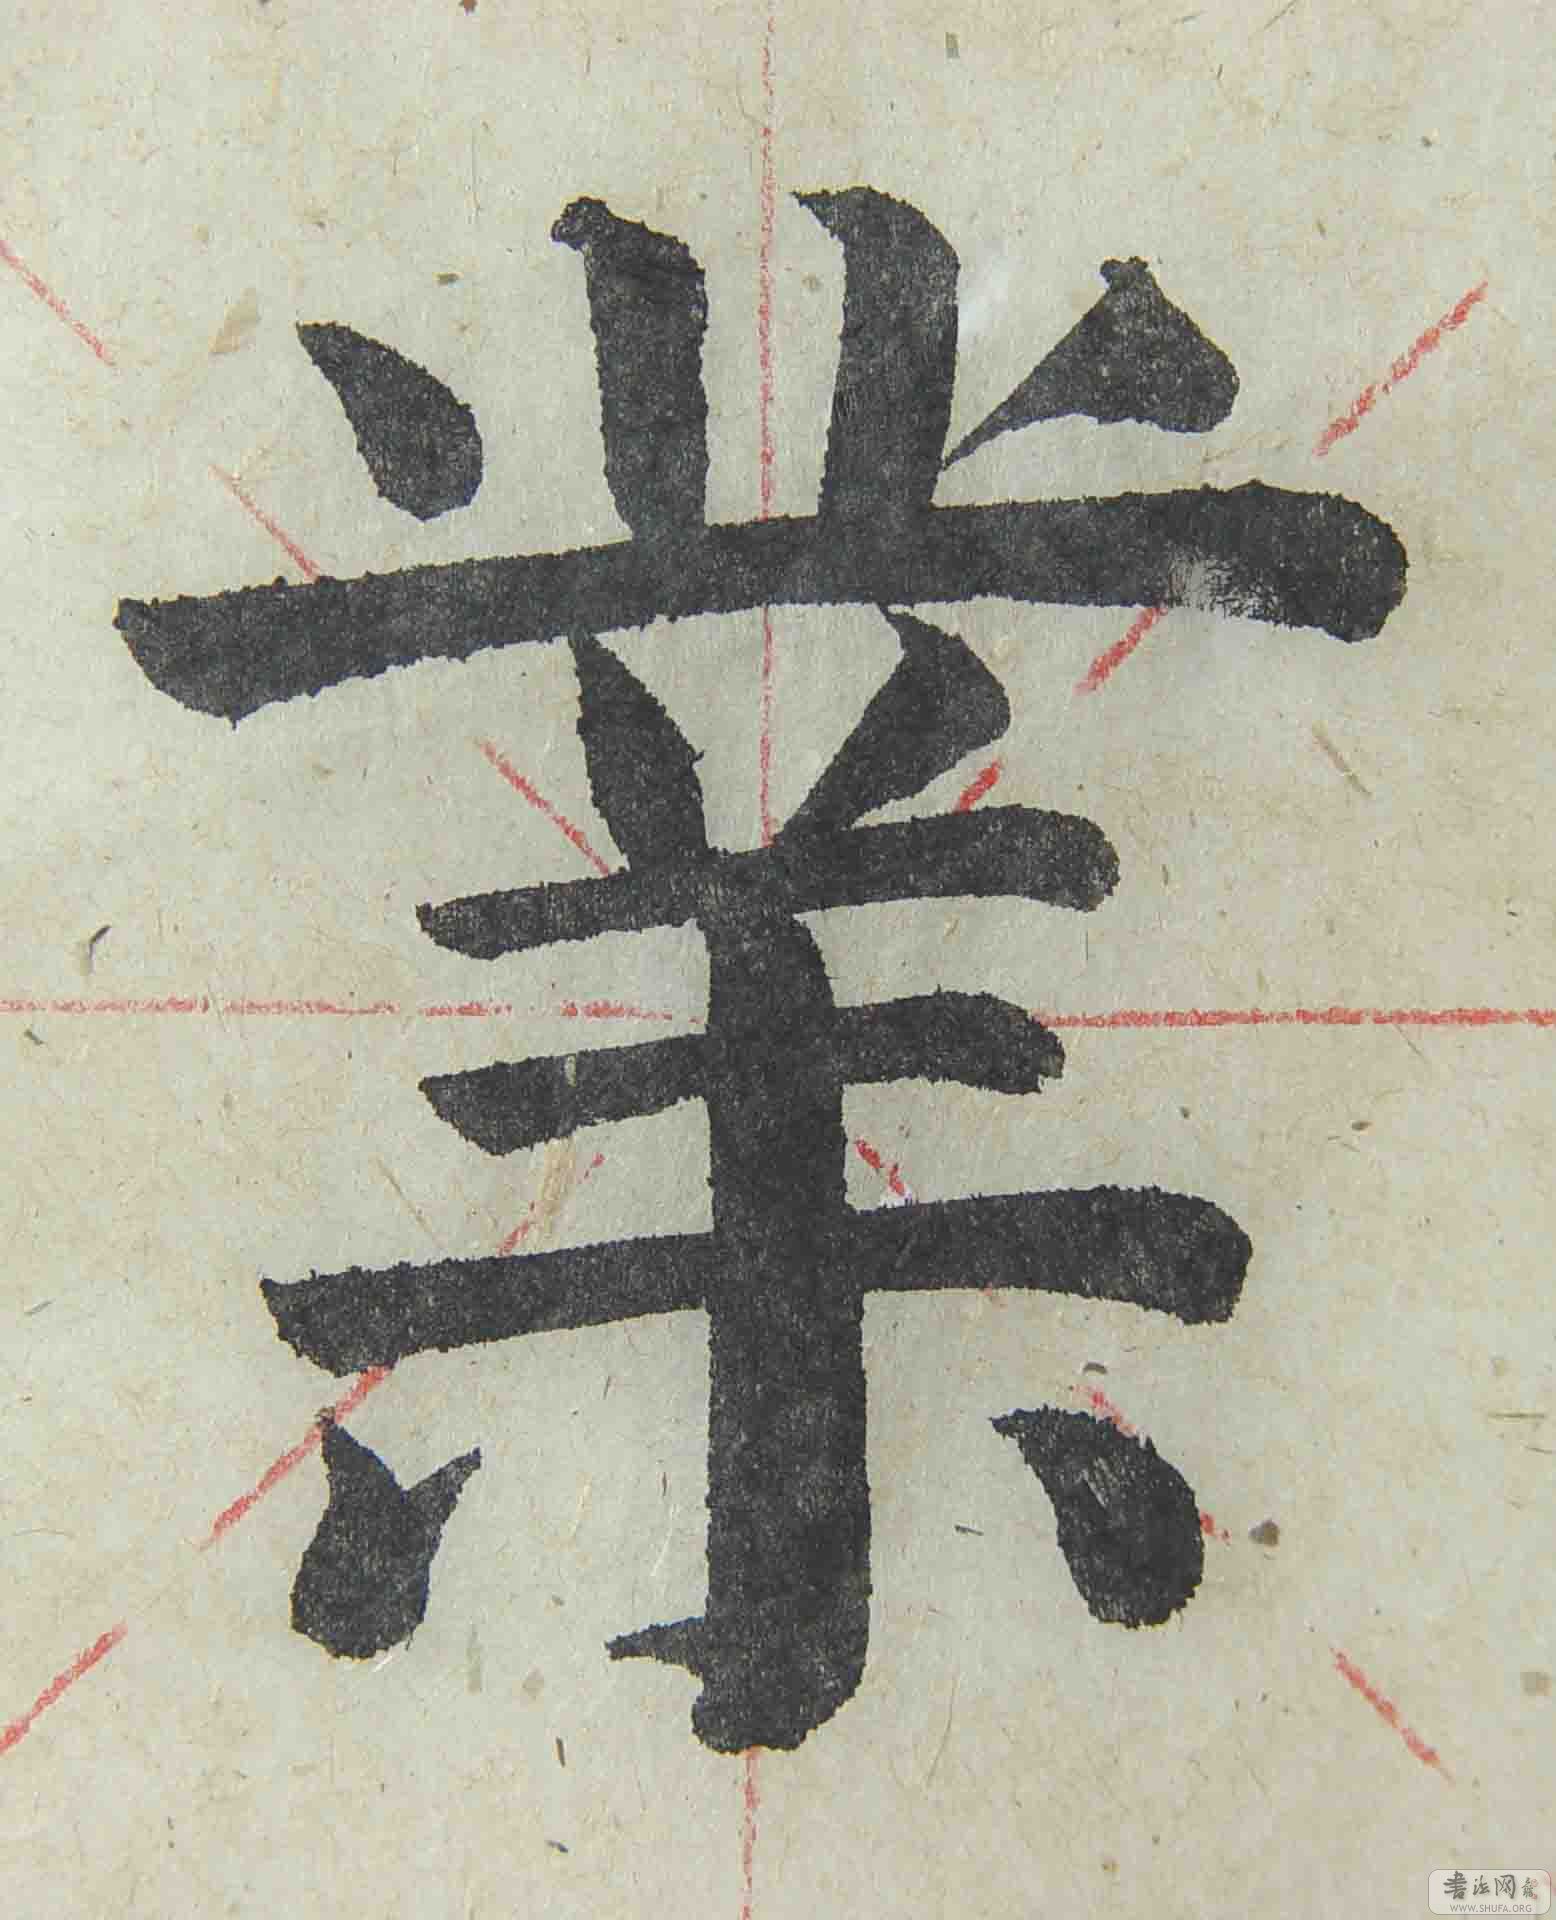 業
书法网
WWW.SHUFA.ORG